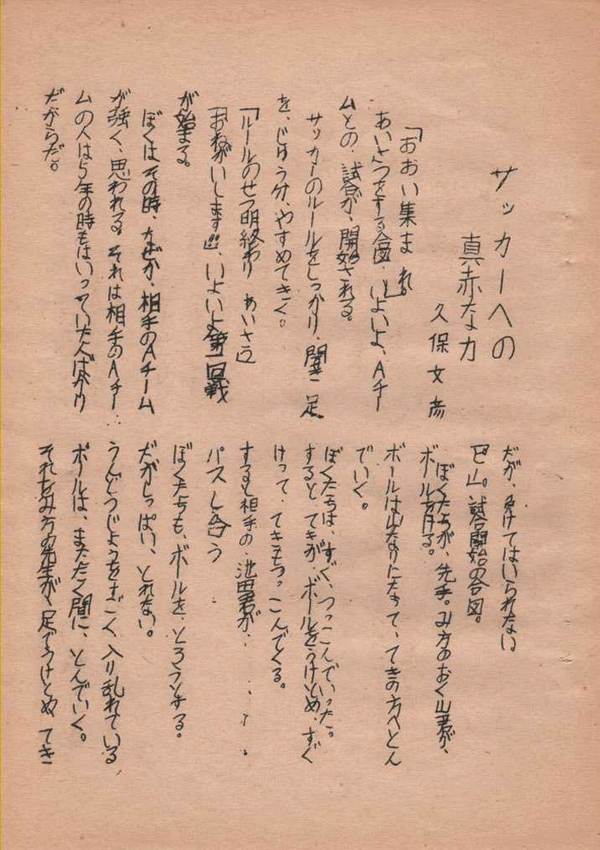 サッカーへの
真赤な力
久保文彦
「おおい集まれ。」
あいさつをする合図。いよいよ、Aチー
ムとの、試合が、開始される。
サッカーのルールをしっかり、聞き、足
を、じゅう分、やすめてきく。
「ルールのせつ明終わり、あいさつ」
「おねがいします」いよいよ第一回戦
が始まる。
ぼくはその時、なぜか、相手のAチーム
が強く、思われる。それは相手のAチー
ムの人は5年の時もはいっていた人ばかり
だからだ。
だが、負けてはいられない
「ピー」。試合開始の合図。
ぼくたちが、先手。み方のおく山君が、
ボールをける。
ボールは山なりにたって、てきの方へとん
でいく。
ぼくたちは、すぐ、つっこんでいった。
すると、てきが、ボールをうけとめ、すぐ
けって、てきもつっこんでくる。
すると相手の、池田君が、
パスし合う
ぼくたちも、ボールを、とろうとする。
だがしっぱい、とれない。
うんどうじょうをすごく、入り乱れている
ボールは、まただく間に、とんでいく。
それをみ方の先生が、足でうけとめ、てき